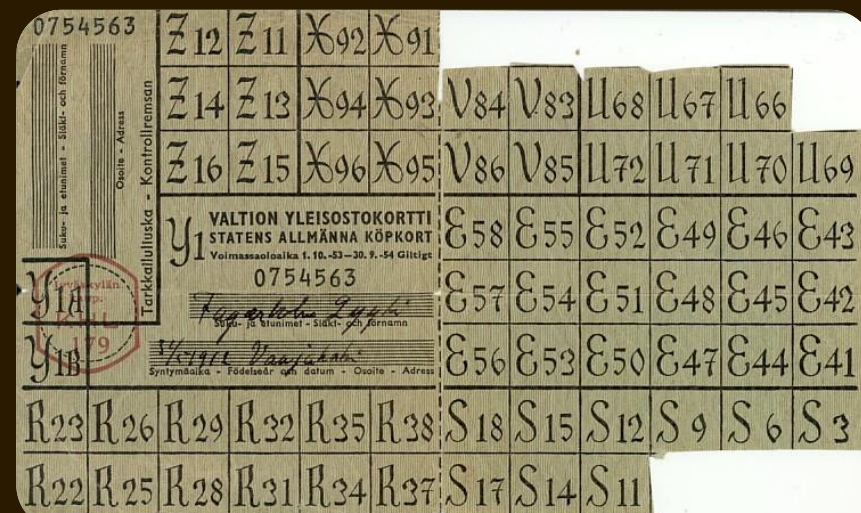 0754563
Suku- ja etunimet - Släkt- och förnamn
Osoite - Adress
Tarkkailuliuska - Kontrollremsan
Z 12 Z 11 X 92 X 91
Z 14 Z 13 X 94 X 93 V 84 V 83 U 68 U 67 U 66
Z 16 Z 15 X 96 X 95 V 86 V 85 U 72 U 71 U 70 U 69
Y1 VALTION YLEISOSTOKORTTI
STATENS ALLMÄNNA KÖPKORT
Voimassaoloaika 1. 10. -53—30. 9. -54 Giltigt
0754563
Suku- ja etunimet - Släkt- och förnamn
Syntymäaika - Födelseår och datum - Osoite - Adress
E 58 E 55 E 52 E 49 E 46 E 43
E 57 E 54 E 51 E 48 E 45 E 42
E 56 E 53 E 50 E 47 E 44 E 41
Y1A
Y1B
Jyväskylän
K.H.L
179
R 23 R 26 R 29 R 32 R 35 R 38 S 18 S 15 S 12 S 9 S 6 S 3
R 22 R 25 R 28 R 31 R 34 R 37 S 17 S 14 S 11